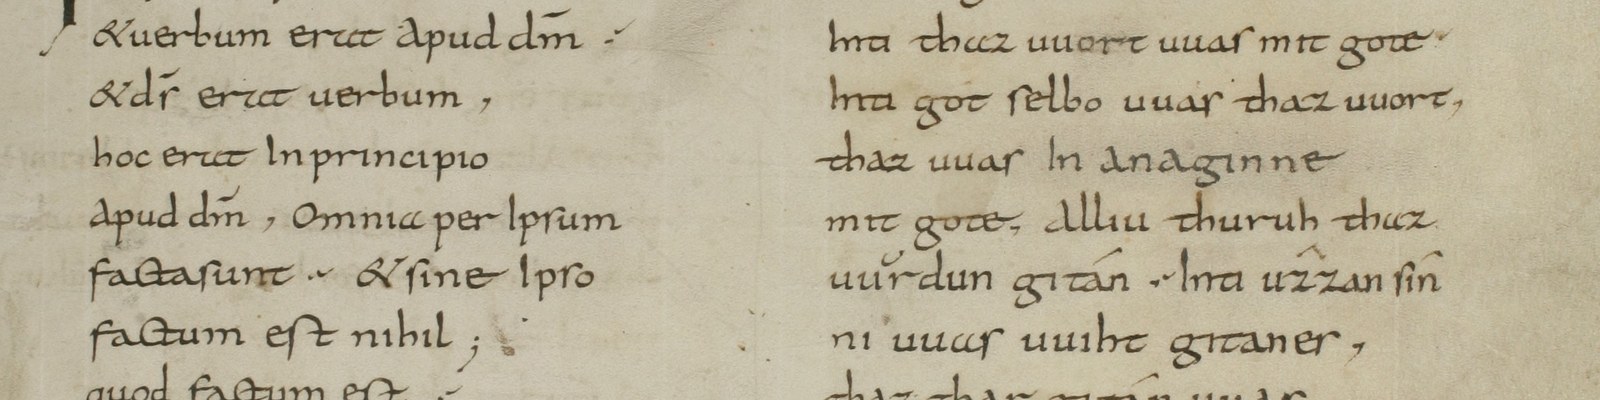 &uerbum erat apud dm̄
&ds̄ erat uerbum,
hoc erat Inprincipio
apud dm̄, Omnia per Ipsum
factasunt · &sine Ipso
factum est nihil;
quod factum est
Inti thaz uuort uuas mit gote
Inti got selbo uuas thaz uuort,
thaz uuas In anaginne
mit gote, alliu thuruh thaz
uurdun gitán · Inti ûzzan sîn
ni uuas uuiht gitanes,
thaz thar gitán uuas